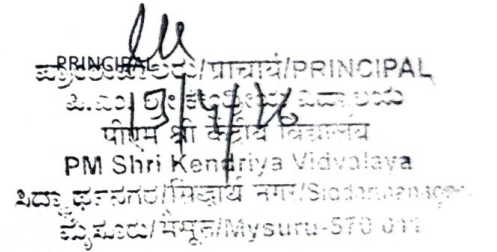 PRINCIPAL
/प्राचार्य/PRINCIPAL
पीएम श्री केन्द्रीय विद्यालय
PM Shri Kendriya Vidyalaya
ಸಿದ್ಧಾರ್ಥನಗರ/सिद्धार्थ नगर/Siddarthanagar
ಮೈಸೂರು/मैसूरु/Mysuru-570 011